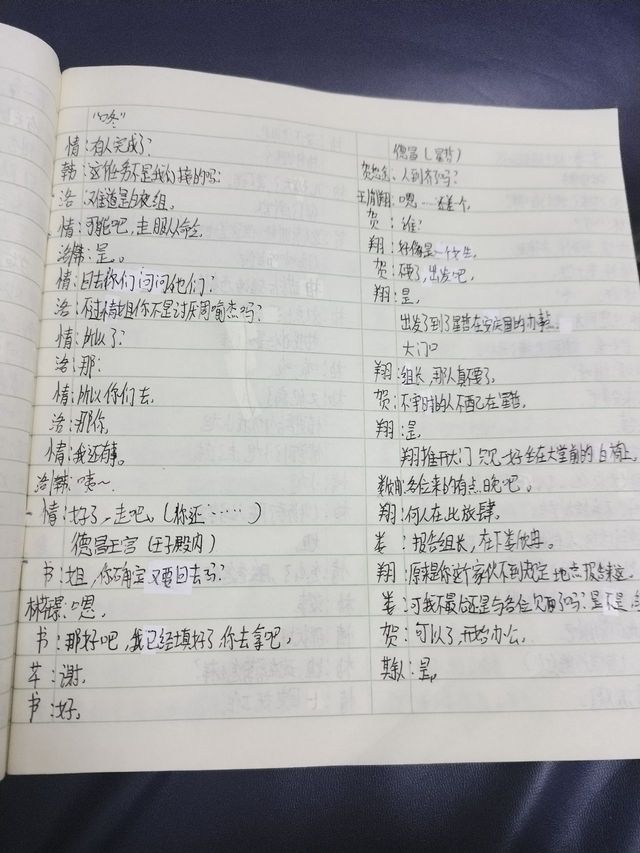 "咚"
情:有人完成了?
韩:这任务不是我们接的吗?
洛:难道是白夜组。
情:可能吧,走服从命令。
洛韩:是。
情:回去你们问问他们?
洛:不过情姐你不是讨厌周喻杰吗?
情:所以了?
洛:那:
情:所以你们去。
洛:那你,
情:我还有事。
洛韩:咦~
情:好了,走吧。(你还……)
德昌王宫(王子殿内)
书:姐,你确定又要回去了?
林芊璟:嗯。
书:那好吧,我已经填好了,你去拿吧,
芊:谢。
书:好。
德昌(星哲)
人到齐了吗?
翔:嗯……还差一个,
贺:谁?
翔:好像是一个女生,
贺:不要了,出发吧,
翔:是,
出发了到了星哲在安庆国的办事处
大门口
翔:组长,那人真不要了。
贺:不守时的人不配在星哲,
翔:是,
翔推开大门 只见一女子坐在大堂前的白椅上。
各位来的有点晚吧。
翔:何人在此放肆。
娄:报告组长,在下娄
翔:原来是你这个家伙不到规定地点报告来这
娄:可我不最后还是与各位见面了吗?是不是,
贺:可以了,开始办公。
其余人:是。